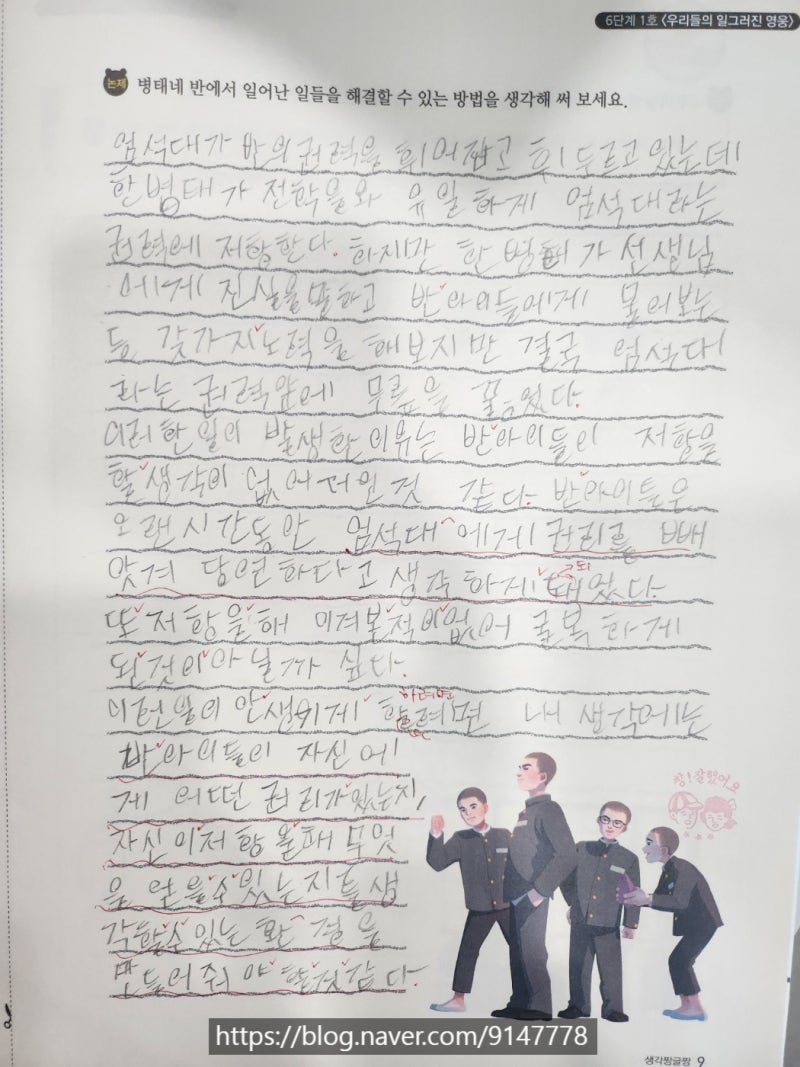 6단계 1호 〈우리들의 일그러진 영웅〉
논제 병태네 반에서 일어난 일들을 해결할 수 있는 방법을 생각해 써 보세요.
엄석대가 반의 권력을 휘어잡고 휘두르고 있는데
한병태가 전학을와 유일하게 엄석대라는
권력에 저항한다. 하지만 한병태가 선생님
에게 진실을말하고 반아이들에게 물어보는
등 갖가지노력을 해보지만 결국 엄석대
라는 권력앞에 무릎을 꿇었다.
이러한일이 발생한이유는 반아이들이 저항을
할생각이 없어서인것 같다. 반아이들은
오랜시간동안 엄석대에게 권리를 빼
앗겨 당연하다고 생각하게 돼었다.
되
또저항을해 이겨본적이없어 굴복하게
된것이아닐까 싶다.
하려면
이런일이 안생기게 할려면 내생각에는
반아이들이 자신에
게 어떤 권리가있는지,
자신이저항을해 무엇
을 얻을수있는지를 생
각할수있는 환경을
만들어줘야 할것같다.
참! 잘했어요
https://blog.naver.com/9147778
생각짱글짱 9